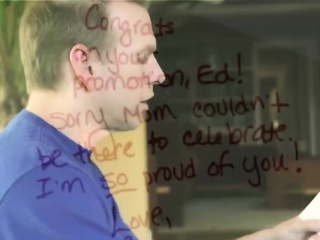 Congrats
on your
promotion, Ed!
sorry Mom couldn't
be there to celebrate.
I'm so proud of you!
Love,